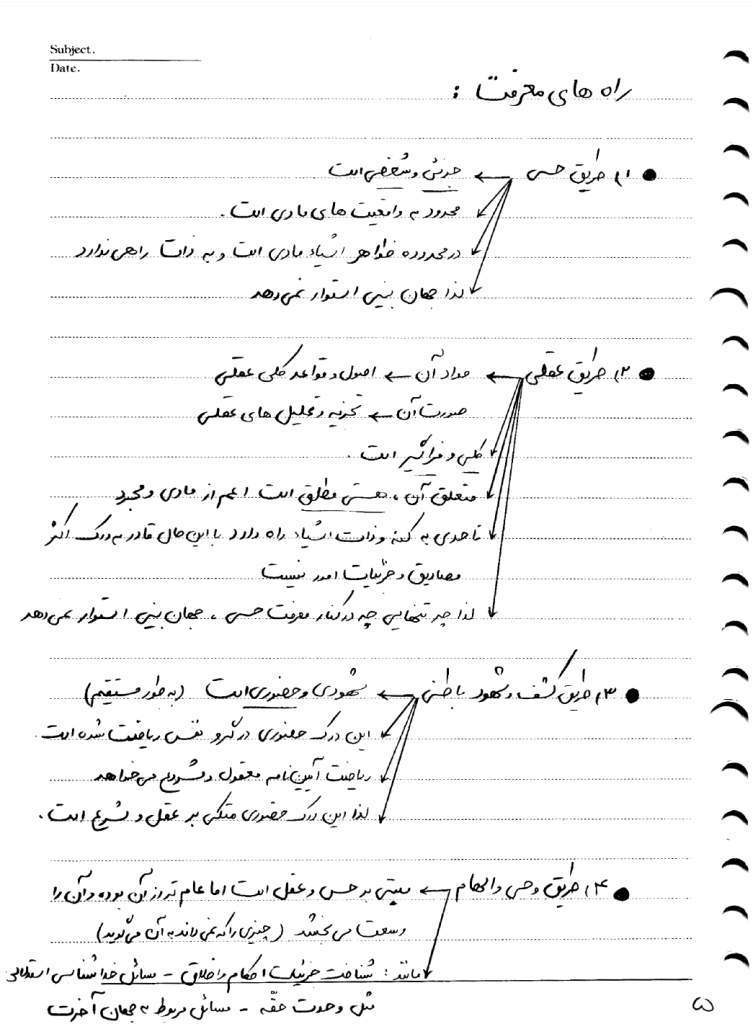 Subject.
Date.
راه های معرفت :
۱) طریق حسی ← جزئی و شخصی است
محدود به واقعیت های مادی است.
در محدوده ظواهر اشیاء مادی است و به ذات راهی ندارد
لذا جهان بینی استوار نمی دهد
۲) طریق عقلی ← مواد آن ← اصول و قواعد کلی عقلی
صورت آن ← تجزیه و تحلیل های عقلی
کلی و فراگیر است.
متعلق آن ، هستی مطلق است اعم از مادی و مجرد
تا حدی به کنه و ذات اشیاء راه دارد با این حال قادر به درک اکثر
مصادیق و جزئیات امور نیست
لذا چه تنهایی چه در کنار معرفت حسی ، جهان بینی استوار نمی دهد
۳) طریق کشف و شهود باطنی ← شهودی و حضوری است (به طور مستقیم)
این درک حضوری در گرو نفس ریاضت شده است
ریاضت آیین نامه معقول و مشروع می خواهد
لذا این درک حضوری متکی بر عقل و شرع است.
۴) طریق وحی و الهام ← مبتنی بر حس و عقل است اما عام تر از آن بوده و آن را
وسعت می بخشد (چیزی را که نمی داند به آن می گوید)
مانند : شناخت جزئیات احکام و اخلاق - مسائل خداشناسی استدلالی
مثل وحدت حقّه - مسائل مربوط به جهان آخرت
۵